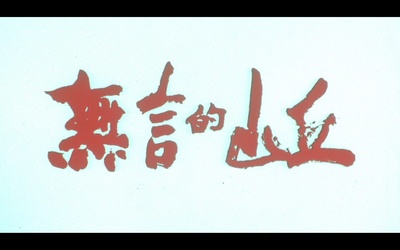 無言的山丘